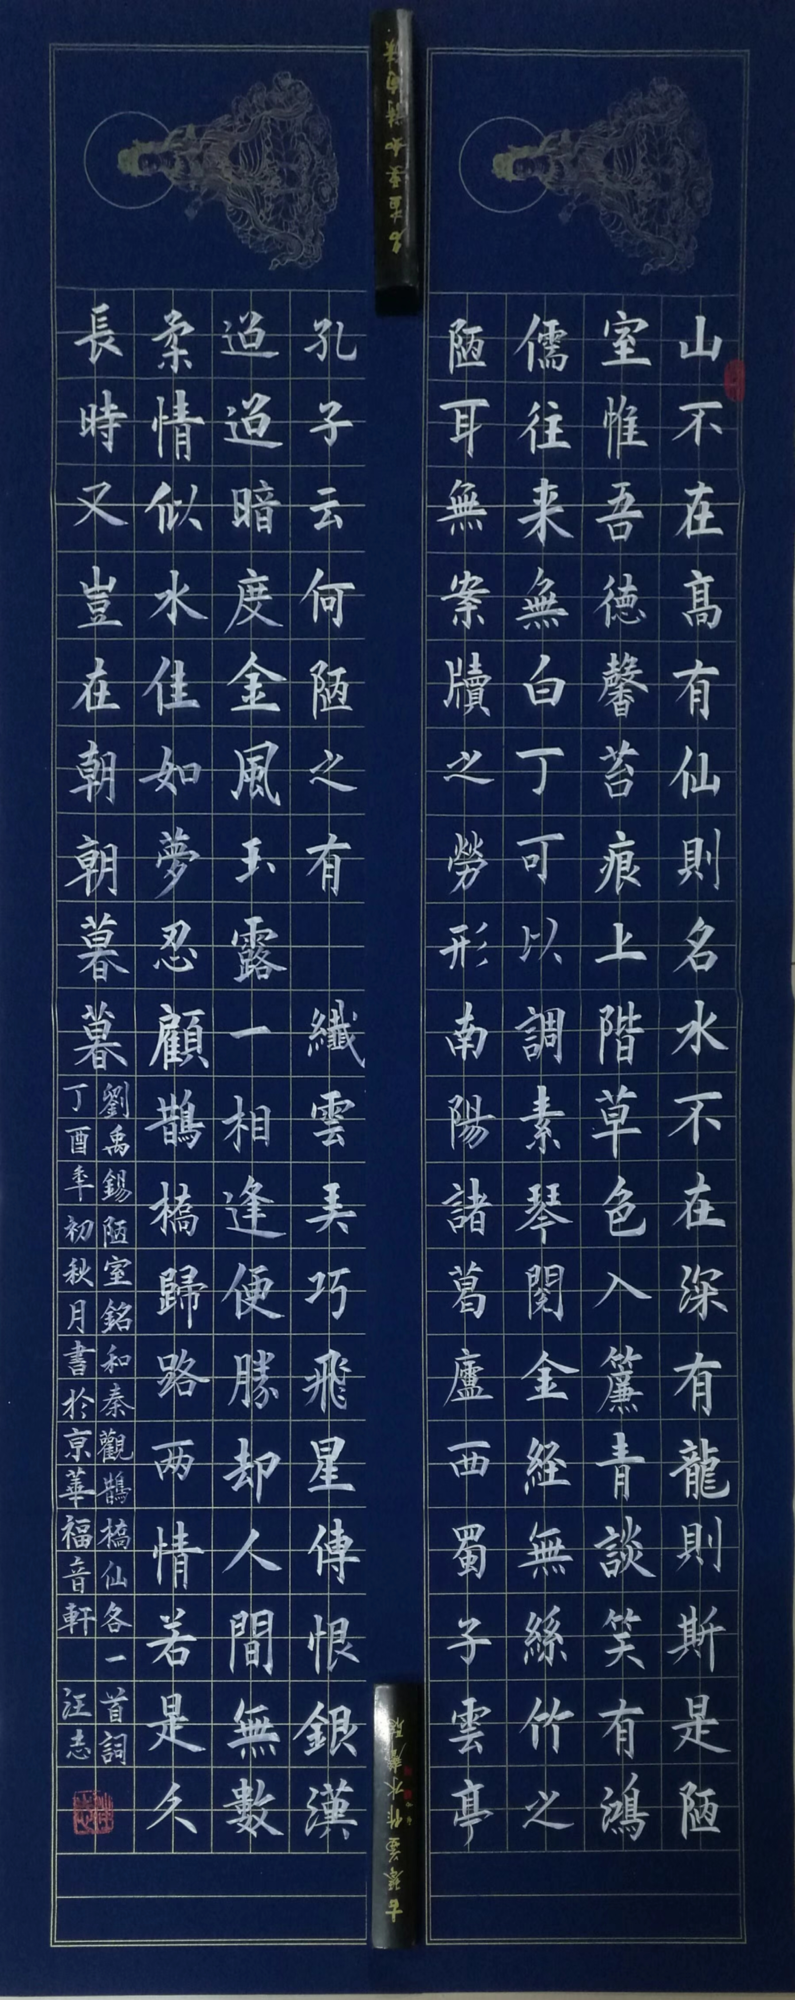 山不在高有仙則名水不在深有龍則斯是陋
室惟吾德馨苔痕上階草色入簾青談笑有鴻
儒往来無白丁可以調素琴閱金経無絲竹之
陋耳無案牘之勞形南陽諸葛廬西蜀子雲亭
孔子云何陋之有 纖雲弄巧飛星傳恨銀漢
迢迢暗度金風玉露一相逢便勝却人間無數
柔情似水佳如夢忍顧鵲橋歸路两情若是久
長時又豈在朝朝暮暮
劉禹錫陋室銘和秦觀鵲橋仙各一首詞
丁酉年初秋月書於京華福音軒 汪志